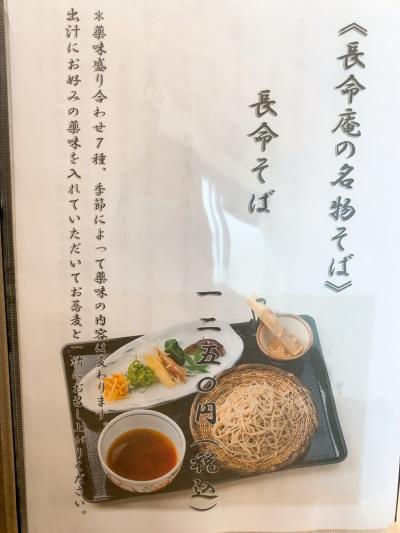 《長命庵の名物そば》
長命そば
一二五〇円(税込)
*薬味盛り合わせ7種、季節によって薬味の内容は変わります。
出汁にお好みの薬味を入れていただいてお蕎麦と一緒にお召し上がりください。